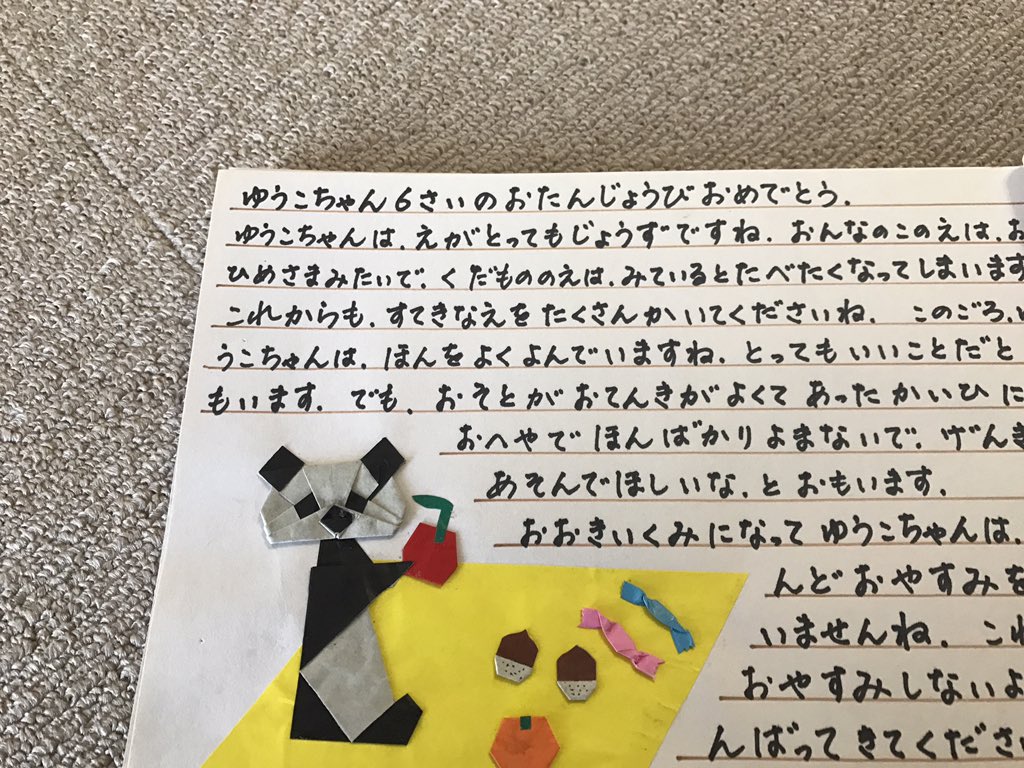 ゆうこちゃん6さいのおたんじょうびおめでとう.
ゆうこちゃんは.えがとってもじょうずですね.おんなのこのえは.お
ひめさまみたいで.くだもののえは.みているとたべたくなってしまいます
これからも.すてきなえをたくさんかいてくださいね.このごろ.
うこちゃんは.ほんをよくよんでいますね.とってもいいことだと
もいます.でも.おそとがおてんきがよくてあったかいひに
おへやでほんばかりよまないで.げんき
あそんでほしいな.とおもいます.
おおきいくみになってゆうこちゃんは.
んどおやすみを
いませんね.これ
おやすみしないよ
んばってきてくださ